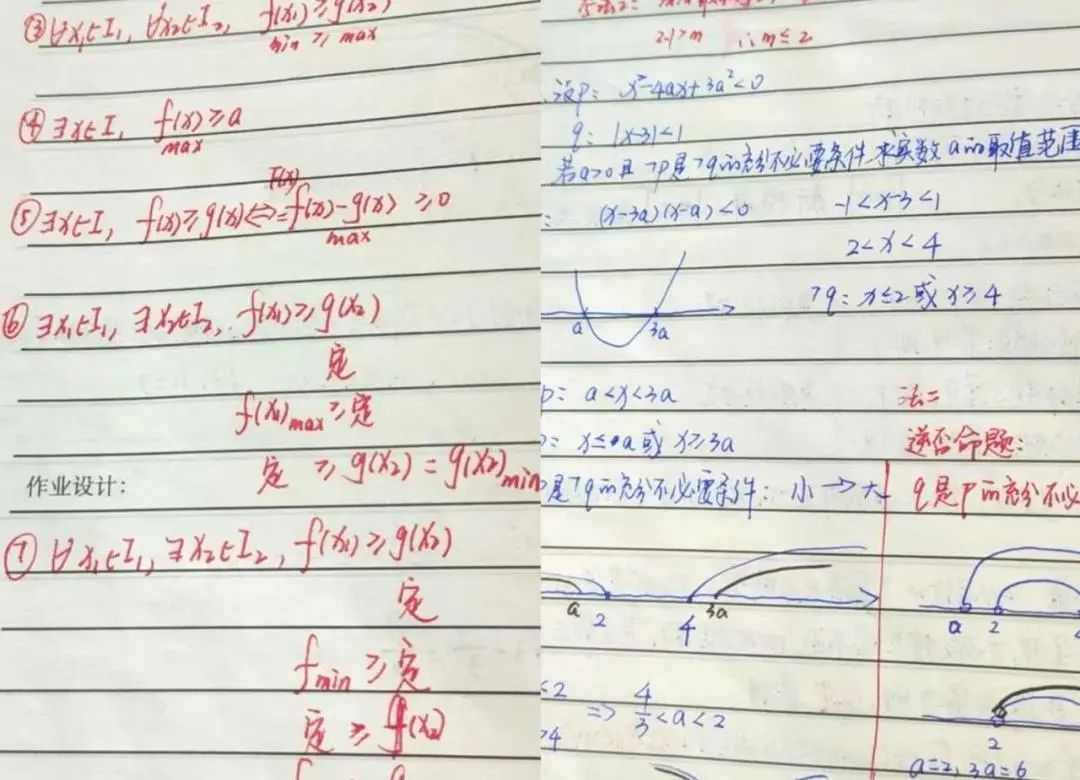 ③ ∀x₁∈I₁, ∀x₂∈I₂, f(x₁)≥g(x₂)
min ≥ max
④ ∃x∈I, f(x)≥a
max
F(x)
⑤ ∃x∈I, f(x)≥g(x)⇔=f(x)-g(x) ≥0
max
⑥ ∃x₁∈I₁, ∃x₂∈I₂, f(x₁)≥g(x₂)
定
f(x₁)max≥定
定 ≥g(x₂)=g(x₂)min
作业设计:
⑦ ∀x₁∈I₁, ∃x₂∈I₂, f(x₁)≥g(x₂)
定
fmin≥定
定≥f(x₂)
2.1>m ∴m≤2
设p: x²-4ax+3a²<0
q: |x-3|<1
若a>0且¬p是¬q的充分不必要条件 求实数a的取值范围
: (x-3a)(x-a)<0 -1<x-3<1
2<x<4
¬q: x≤2或x≥4
a 3a
p: a<x<3a 法二
: x≤a或x≥3a 逆否命题:
是¬q的充分不必要条件: 小→大 q是p的充分不必
a 2 4 3a a 2 4
<2
⇒ 4/3<a<2
>4
2
a=2, 3a=6